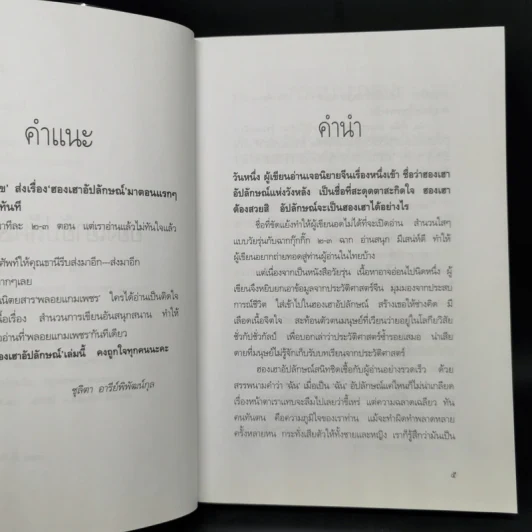 คำแนะ
ช' ส่งเรื่อง'ฮองเฮาอัปลักษณ์'มาตอนแรกๆ
ทันที
มาทีละ ๒-๓ ตอน แต่เราอ่านแล้วไม่ทันใจแล้ว
ศัพท์ให้คุณธานีรีบส่งมาอีก---ส่งมาอีก
ากๆเลย
นิตยสาร'พลอยแกมเพชร' ใครได้อ่านเป็นติดใจ
นื้อเรื่อง สำนวนการเขียนอันสนุกสนาน ทำให้
งอ่านที่'พลอยแกมเพชร'กันทีเดียว
องเฮาอัปลักษณ์'เล่มนี้ คงถูกใจทุกคนนะคะ
ชุลิตา อารีย์พิพัฒน์กุล
คำนำ
วันหนึ่ง ผู้เขียนอ่านเจอนิยายจีนเรื่องหนึ่งเข้า ชื่อว่าฮองเฮา
อัปลักษณ์แห่งวังหลัง เป็นชื่อที่สะดุดตาสะกิดใจ ฮองเฮา
ต้องสวยสิ อัปลักษณ์จะเป็นฮองเฮาได้อย่างไร
ชื่อที่ขัดแย้งทำให้ผู้เขียนอดไม่ได้ที่จะเปิดอ่าน สำนวนใสๆ
แบบวัยรุ่นกับฉากกุ๊กกิ๊ก ๒-๓ ฉาก อ่านสนุก มีเสน่ห์ดี ทำให้
ผู้เขียนอยากถ่ายทอดสู่ท่านผู้อ่านในไทยบ้าง
แต่เนื่องจากเป็นหนังสือวัยรุ่น เนื้อหาอาจอ่อนไปนิดหนึ่ง ผู้
เขียนจึงหยิบยกเอาข้อมูลจากประวัติศาสตร์จีน มุมมองจากประสบ
การณ์ชีวิต ใส่เข้าไปในฮองเฮาอัปลักษณ์ สร้างเธอให้ช่างคิด มี
เลือดเนื้อจิตใจ สะท้อนตัวตนมนุษย์ที่เวียนว่ายอยู่ในโลกียวิสัย
ชั่วกัปชั่วกัลป์ เพื่อบอกเล่าว่าประวัติศาสตร์ซ้ำรอยเสมอ น่าเสีย
ดายที่มนุษย์ไม่รู้จักเก็บรับบทเรียนจากประวัติศาสตร์
ฮองเฮาอัปลักษณ์สนิทชิดเชื้อกับผู้อ่านอย่างรวดเร็ว ด้วย
สรรพนามคำว่า 'ฉัน' เมื่อเป็น 'ฉัน' อัปลักษณ์แค่ไหนก็ไม่น่าเกลียด
เรื่องหน้าตาเราแทบจะลืมไปเลยว่าขี้เหร่ แต่ความฉลาดเฉลียว ทัน
คนทันตน คือความภูมิใจของเราท่าน แม้จะทำผิดทำพลาดหลาย
ครั้งหลายหน กระทั่งเสียตัวให้ทั้งชายและหญิง เราก็รู้สึกว่ามันเป็น
๕